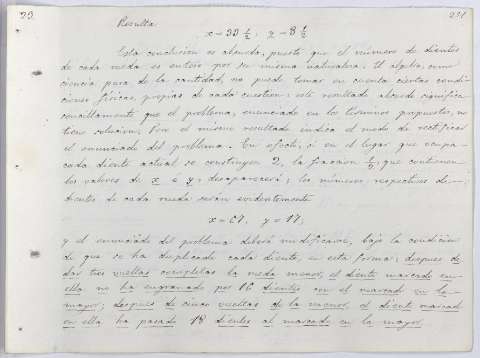 23.
231
Resulta
x = 33 1/2, y = 8 1/2
Esta conclusion es absurda, puesto que el número de dientes
de cada rueda es entero por su misma naturaleza. El algebra, como
ciencia pura de la cantidad, no puede tomar en cuenta ciertas condi-
ciones físicas, propias de cada cuestion: este resultado absurdo significa
sencillamente que el problema, enunciado en los terminos propuestos, no
tiene solucion. Pero el mismo resultado indica el modo de rectificar
el enunciado del problema. En efecto, si en el lugar que ocupa
cada diente actual se construyen 2, la fraccion 1/2, que contienen
los valores de x é y, desaparecerá; los números respectivos de
dientes de cada rueda serán evidentemente
x = 67, y = 17,
y el enunciado del problema deberá modificarse, bajo la condicion
de que se ha duplicado cada diente, en esta forma: despues de
dar tres vueltas completas la rueda menor, el diente marcado en
ella no ha engranado por 16 dientes con el marcado en la
mayor; despues de cinco vueltas de la menor, el diente marcado
en ella ha pasado 18 dientes al marcado en la mayor.